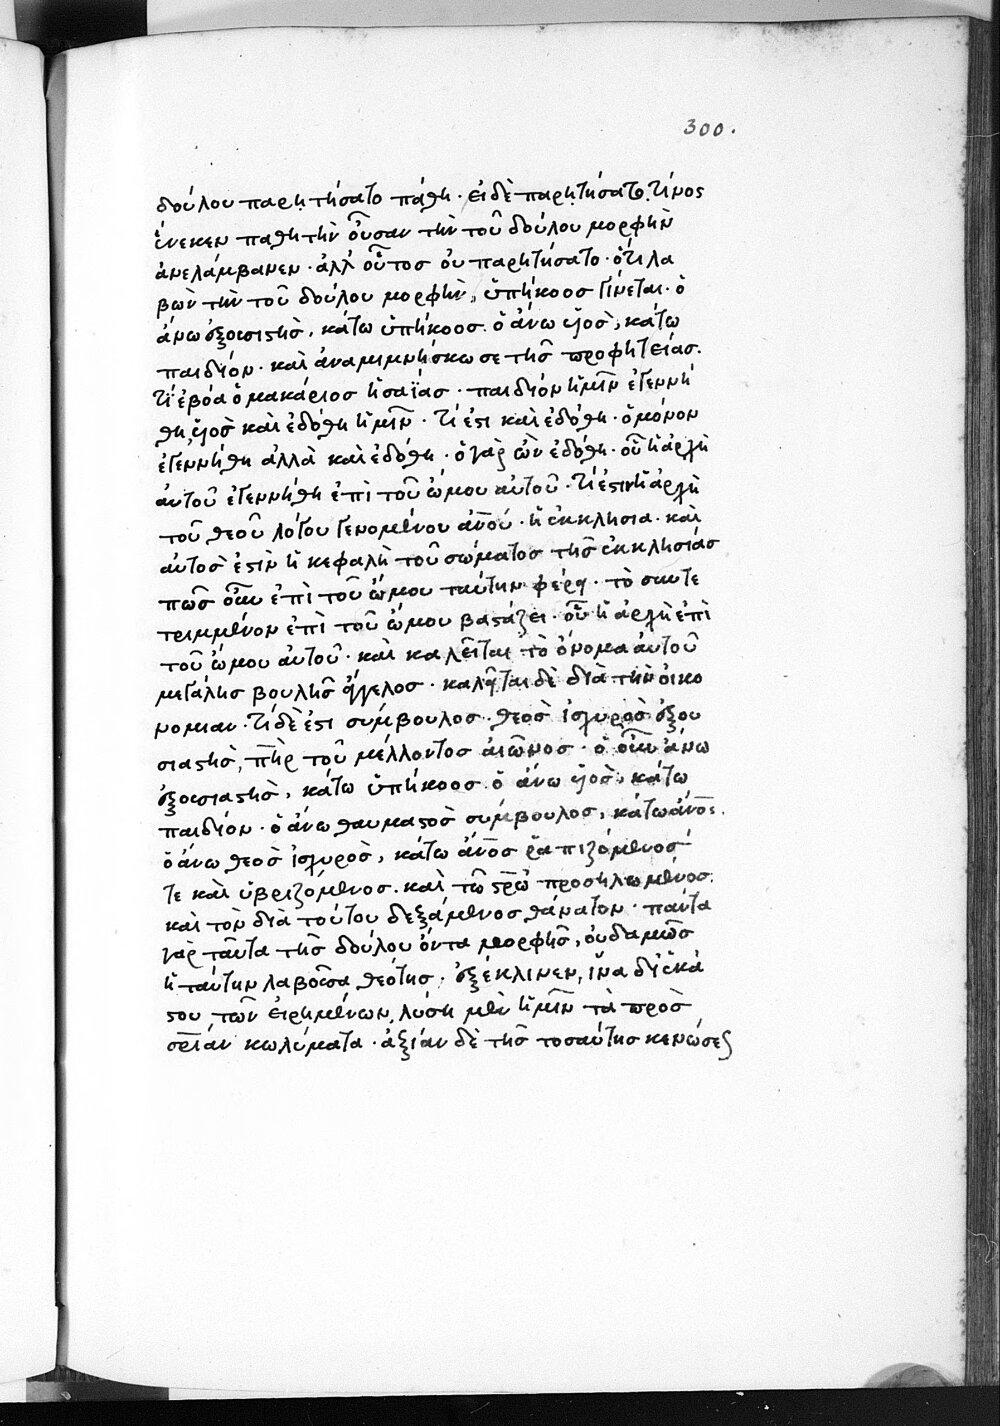 300.
δούλου παρητήσατο πάθη · εἰ δὲ παρητήσατο, τίνος
ἕνεκεν παθητὴν οὖσαν τὴν τοῦ δούλου μορφὴν
ἀνελάμβανεν · ἀλλ' οὗτος οὐ παρητήσατο · ὅτι λα
βὼν τὴν τοῦ δούλου μορφὴν, ὑπήκοος γίνεται · ὁ
ἄνω ἐξουσιστὴς, κάτω ὑπήκοος. ὁ ἄνω υἱὸς, κάτω
παιδίον · καὶ ἀναμιμνήσκω σε τῆς προφητείας.
τί ἐβόα ὁ μακάριος ἡσαΐας · παιδίον ἡμῖν ἐγεννή
θη, υἱὸς καὶ ἐδόθη ἡμῖν · τί ἐστι καὶ ἐδόθη · ὁ μόνον
ἐγεννήθη ἀλλὰ καὶ ἐδόθη · ὁ γὰρ ὢν ἐδόθη · οὗ ἡ ἀρχὴ
αὐτοῦ ἐγεννήθη ἐπὶ τοῦ ὤμου αὐτοῦ · τί ἐστιν ἡ ἀρχὴ
τοῦ θεοῦ λόγου γενομένου ἀνου · ἡ ἐκκλησία · καὶ
αὐτός ἐστιν ἡ κεφαλὴ τοῦ σώματος τῆς ἐκκλησίας
πῶς οὖν ἐπὶ τοῦ ὤμου ταύτην φέρει · τὸ συντε
τριμμένον ἐπὶ τοῦ ὤμου βαστάζει · οὗ ἡ ἀρχὴ ἐπὶ
τοῦ ὤμου αὐτοῦ · καὶ καλεῖται τὸ ὄνομα αὐτοῦ
μεγάλης βουλῆς ἄγγελος · καλεῖται δὲ διὰ τὴν οἰκο
νομίαν · τί δὲ ἐστι σύμβουλος · θεὸς ἰσχυρὸς ἐξου
σιαστὴς, πηρ τοῦ μέλλοντος αἰῶνος · ὁ οὖν ἄνω
ἐξουσιαστὴς, κάτω ὑπήκοος. ὁ ἄνω υἱὸς, κάτω
παιδίον · ὁ ἄνω θαυμαστὸς σύμβουλος, κάτω ἀνος.
ὁ ἄνω θεὸς ἰσχυρὸς, κάτω ἀνος ῥαπιζόμενός
τε καὶ ὑβριζόμενος. καὶ τῶ στρω προσηλωμένος.
καὶ τὸν διὰ τούτου δεξάμενος θάνατον · πάντα
γὰρ ταῦτα τῆς δούλου ὄντα μορφῆς, οὐδαμῶς
ἡ ταύτην λαβοῦσα θεότης · ἐξέκλινεν, ἵνα δι' ἑκά
στου τῶν εἰρημένων, λύσῃ μὲν ἡμῖν τὰ πρὸς
σριαν κωλύματα · ἀξίαν δὲ τῆς τοσαύτης κενώσε